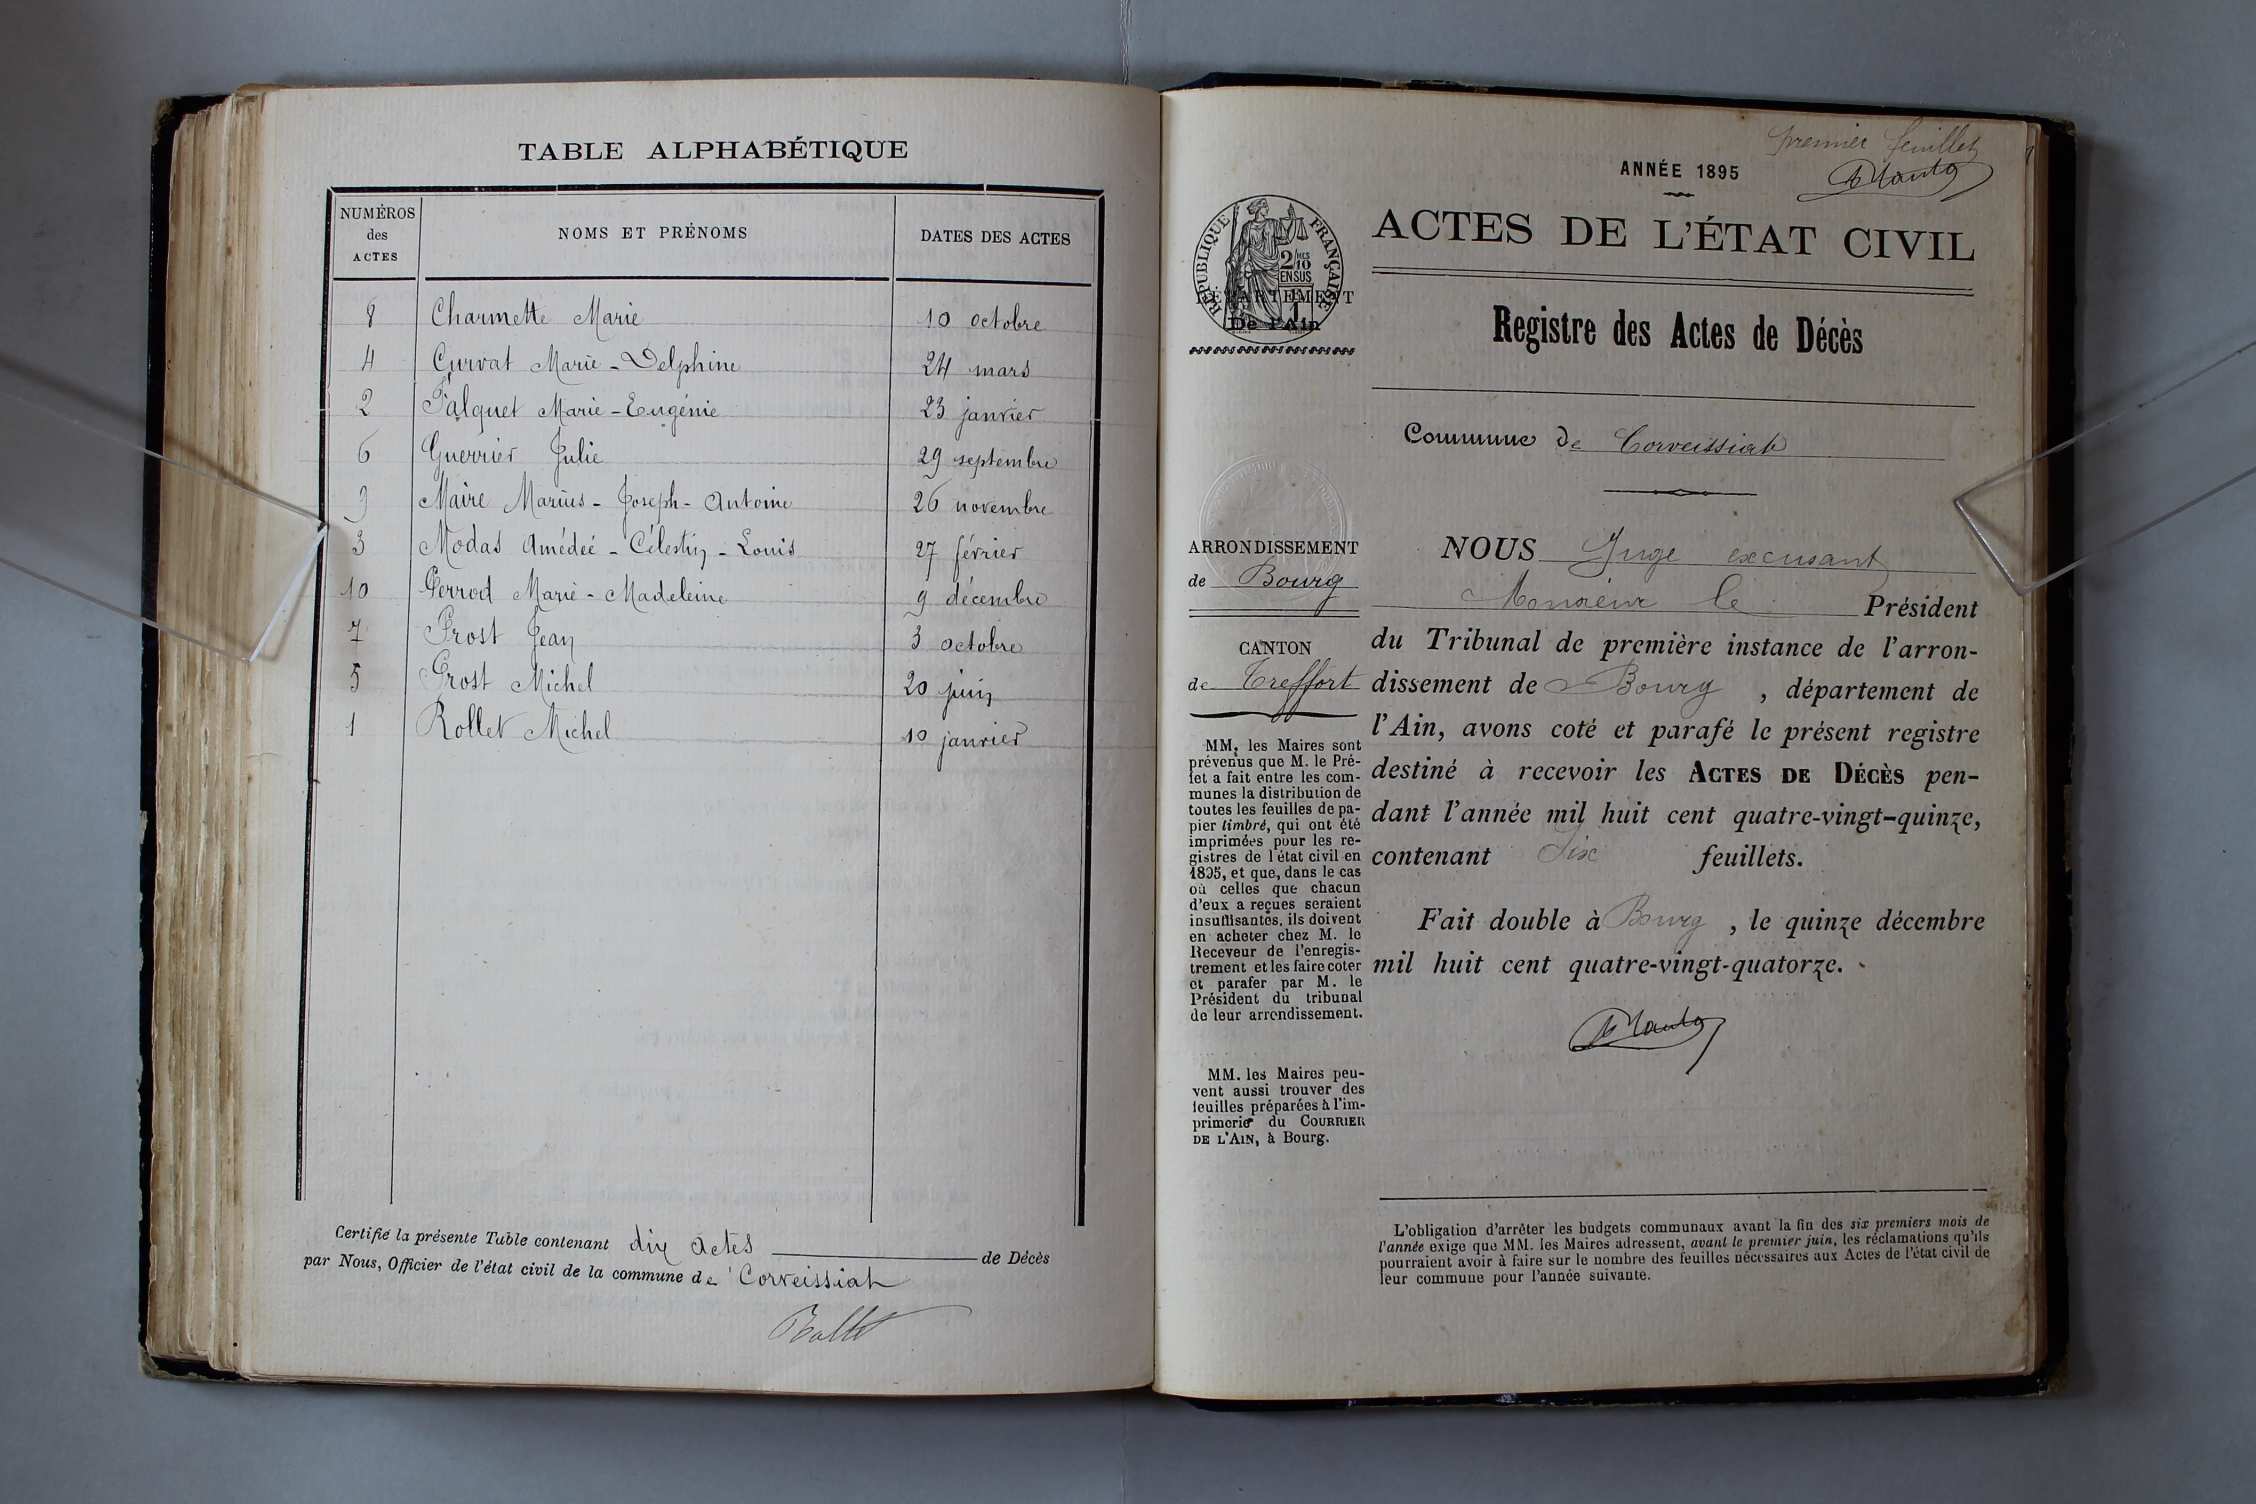 TABLE ALPHABÉTIQUE
NUMÉROS des ACTES NOMS ET PRÉNOMS DATES DES ACTES
8 Charmette Marie 10 octobre
4 Curvat Marie-Delphine 24 mars
2 Falquet Marie-Eugénie 23 janvier
6 Guerrier Julie 29 septembre
9 Maire Marius-Joseph-Antoine 26 novembre
3 Modas Amédée-Célestin-Louis 27 février
10 Perrod Marie-Madeleine 9 décembre
7 Prost Jean 3 octobre
5 Prost Michel 20 juin
1 Rollet Michel 10 janvier
Certifié la présente Table contenant dix actes de Décès
par Nous, Officier de l'état civil de la commune de Corveissiat
Rollet
premier feuillet
ANNÉE 1895
RÉPUBLIQUE FRANÇAISE
2/10 EN SUS
DÉPARTEMENT
De l'Ain
ACTES DE L'ÉTAT CIVIL
Registre des Actes de Décès
Commune de Corveissiat
ARRONDISSEMENT
de Bourg
CANTON
de Treffort
MM. les Maires sont
prévenus que M. le Pré-
fet a fait entre les com-
munes la distribution de
toutes les feuilles de pa-
pier timbré, qui ont été
imprimées pour les re-
gistres de l'état civil en
1895, et que, dans le cas
où celles que chacun
d'eux a reçues seraient
insuffisantes, ils doivent
en acheter chez M. le
Receveur de l'enregis-
trement et les faire coter
et parafer par M. le
Président du tribunal
de leur arrondissement.
MM. les Maires peu-
vent aussi trouver des
feuilles préparées à l'im-
primerie du COURRIER
DE L'AIN, à Bourg.
NOUS Juge excusant
Monsieur le Président
du Tribunal de première instance de l'arron-
dissement de Bourg, département de
l'Ain, avons coté et parafé le présent registre
destiné à recevoir les ACTES DE DÉCÈS pen-
dant l'année mil huit cent quatre-vingt-quinze,
contenant Six feuillets.
Fait double à Bourg, le quinze décembre
mil huit cent quatre-vingt-quatorze.
L'obligation d'arrêter les budgets communaux avant la fin des six premiers mois de
l'année exige que MM. les Maires adressent, avant le premier juin, les réclamations qu'ils
pourraient avoir à faire sur le nombre des feuilles nécessaires aux Actes de l'état civil de
leur commune pour l'année suivante.